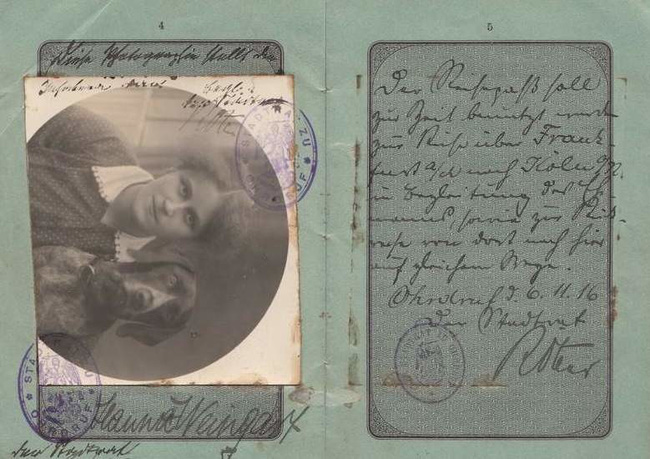 4
Diese Photographie stellt den
Inhaberin dar.
STADTRAT ZU OHRDRUF
Hanna Weingart
der Stadtrat
5
Der Reisepaß soll
zur Zeit benutzt werden
zur Reise über Frank-
furt a/M nach Köln a/Rh.
in Begleitung des
sowie zur Rück-
reise von dort nach hier
auf gleichem Wege.
Ohrdruf d. 6. 11. 16
Der Stadtrat